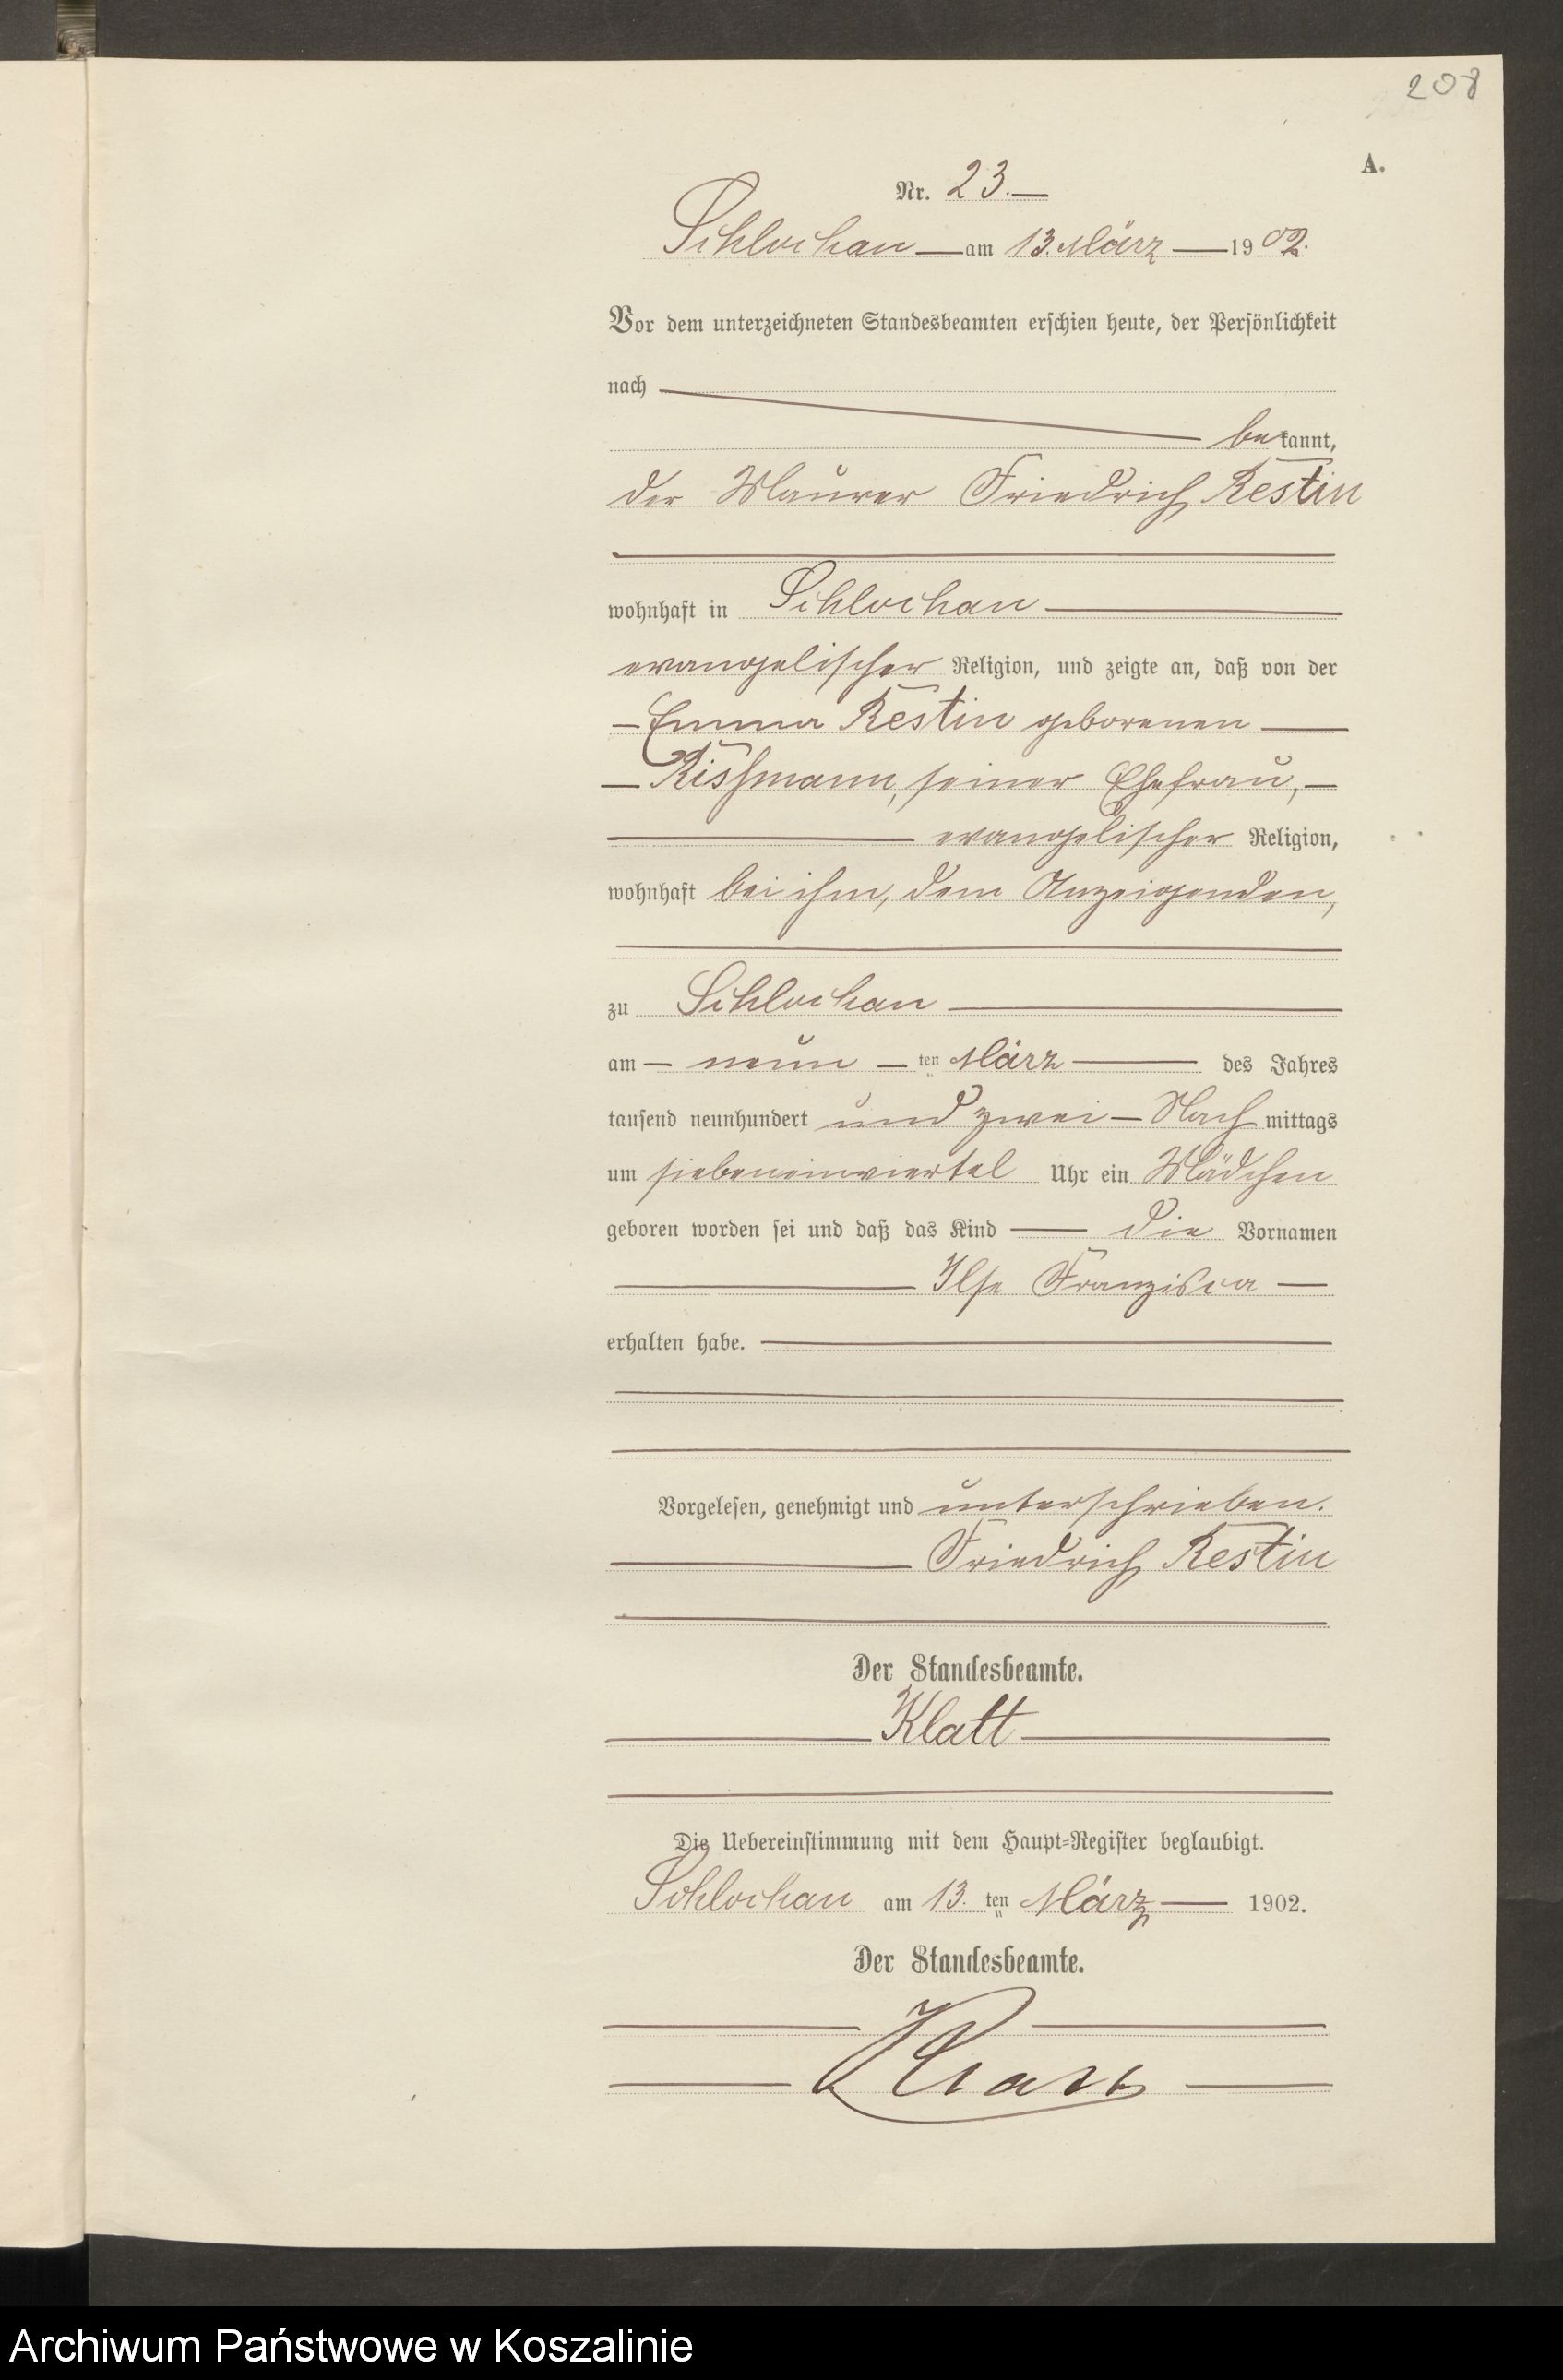 208
A.
Nr. 23.
Schlochau am 13. März 1902.
Vor dem unterzeichneten Standesbeamten erschien heute, der Persönlichkeit
nach
bekannt,
der Maurer Friedrich Restin
wohnhaft in Schlochau
evangelischer Religion, und zeigte an, daß von der
Emma Restin geborenen
Rissmann, seiner Ehefrau,
evangelischer Religion,
wohnhaft bei ihm, dem Anzeigenden,
zu Schlochau
am neun ten März des Jahres
tausend neunhundert und zwei Nachmittags
um siebeneinviertel Uhr ein Mädchen
geboren worden sei und daß das Kind die Vornamen
Ilse Franzisca
erhalten habe.
Vorgelesen, genehmigt und unterschrieben.
Friedrich Restin
Der Standesbeamte.
Klatt
Die Uebereinstimmung mit dem Haupt-Register beglaubigt.
Schlochau am 13. ten März 1902.
Der Standesbeamte.
Klatt
Archiwum Państwowe w Koszalinie